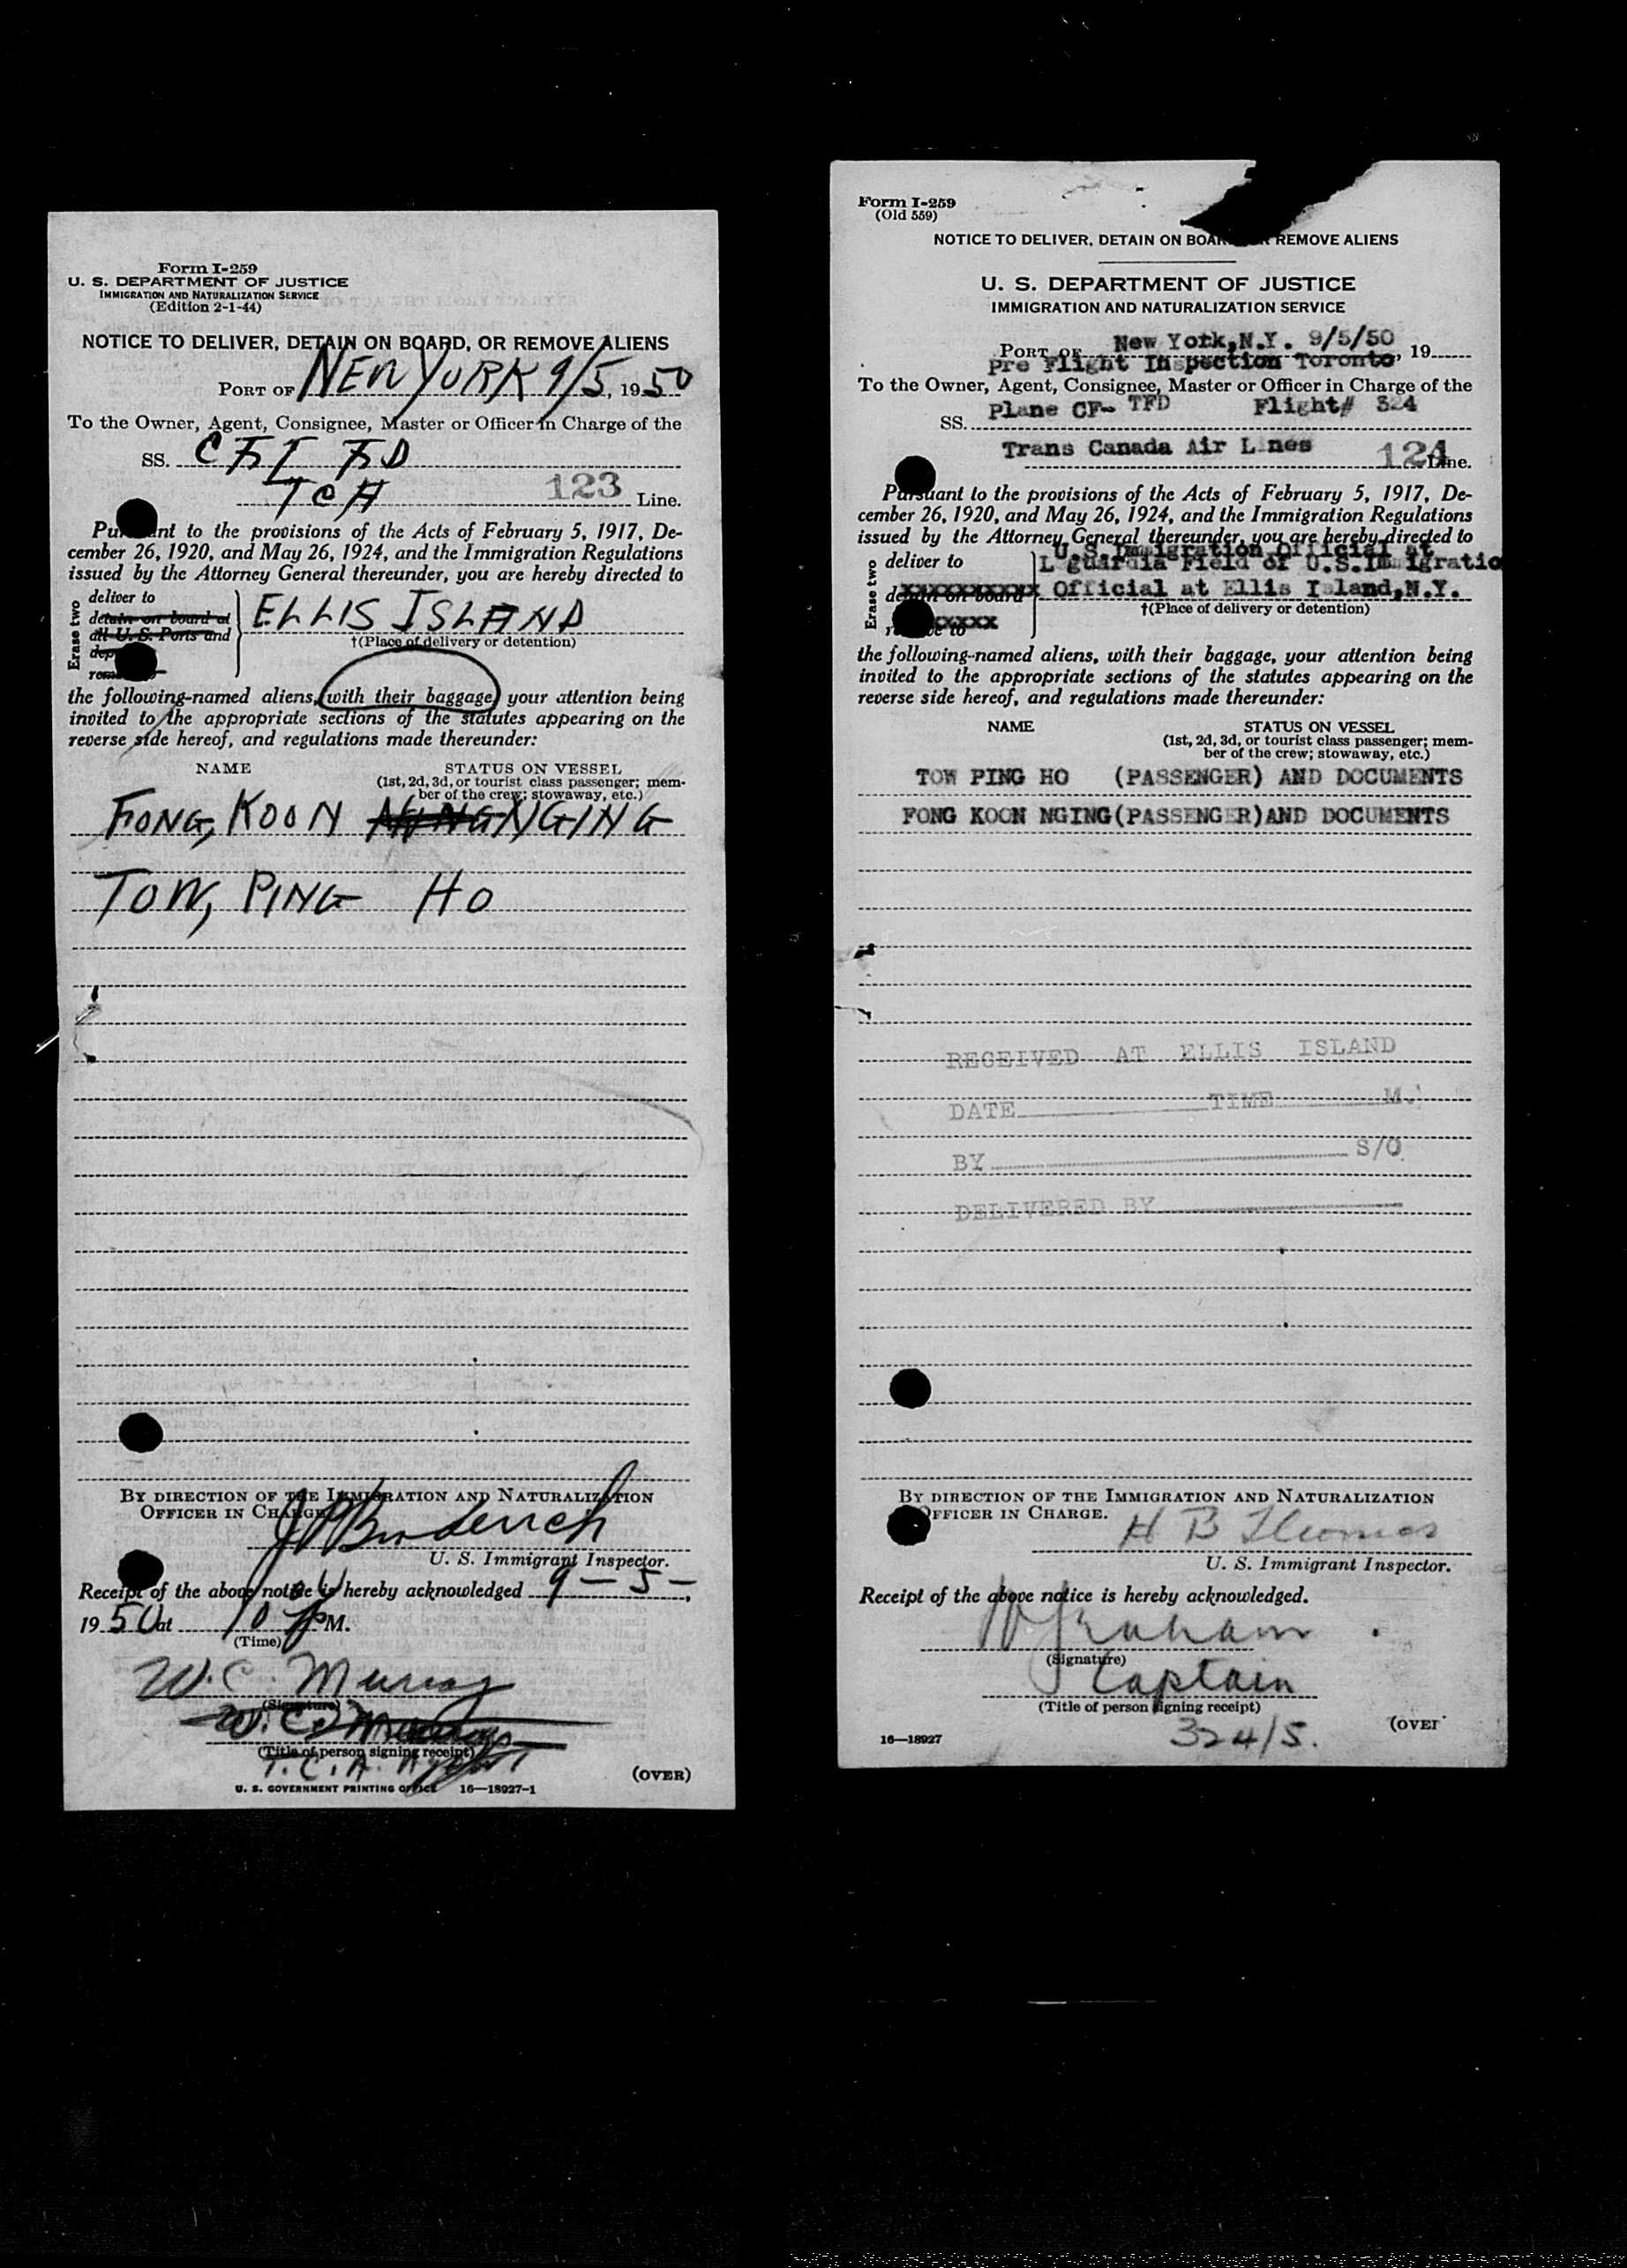 Form I-259
U. S. DEPARTMENT OF JUSTICE
IMMIGRATION AND NATURALIZATION SERVICE
(Edition 2-1-44)
NOTICE TO DELIVER, DETAIN ON BOARD, OR REMOVE ALIENS
PORT OF NEW YORK 9/5, 1950
To the Owner, Agent, Consignee, Master or Officer in Charge of the
SS. CFI FD
TCA 123 Line.
Pursuant to the provisions of the Acts of February 5, 1917, De-
cember 26, 1920, and May 26, 1924, and the Immigration Regulations
issued by the Attorney General thereunder, you are hereby directed to
Erase two
deliver to
detain on board at
all U. S. Ports and
ELLIS ISLAND
†(Place of delivery or detention)
the following-named aliens, with their baggage, your attention being
invited to the appropriate sections of the statutes appearing on the
reverse side hereof, and regulations made thereunder:
NAME STATUS ON VESSEL
(1st, 2d, 3d, or tourist class passenger; mem-
ber of the crew; stowaway, etc.)
FONG, KOON NGING
TOW, PING HO
BY DIRECTION OF THE IMMIGRATION AND NATURALIZATION
OFFICER IN CHARGE.
U. S. Immigrant Inspector.
Receipt of the above notice is hereby acknowledged 9-5-,
1950 at 10 P M.
(Time)
W. C. Murray
(Signature)
W. C. Murray
(Title of person signing receipt)
T. C. A. Agent
U. S. GOVERNMENT PRINTING OFFICE 16—18927-1
(OVER)
Form I-259
(Old 559)
NOTICE TO DELIVER, DETAIN ON BOARD, OR REMOVE ALIENS
U. S. DEPARTMENT OF JUSTICE
IMMIGRATION AND NATURALIZATION SERVICE
New York,N.Y. 9/5/50
PORT OF , 19
Pre Flight Inspection Toronto
To the Owner, Agent, Consignee, Master or Officer in Charge of the
SS. Plane CF- TFD Flight# 324
Trans Canada Air Lines 124 Line.
Pursuant to the provisions of the Acts of February 5, 1917, De-
cember 26, 1920, and May 26, 1924, and the Immigration Regulations
issued by the Attorney General thereunder, you are hereby directed to
Erase two
deliver to
detain on board
U.S.Immigration Official at
L guardia Field or U.S.Immigratio
Official at Ellis Island,N.Y.
†(Place of delivery or detention)
the following-named aliens, with their baggage, your attention being
invited to the appropriate sections of the statutes appearing on the
reverse side hereof, and regulations made thereunder:
NAME STATUS ON VESSEL
(1st, 2d, 3d, or tourist class passenger; mem-
ber of the crew; stowaway, etc.)
TOW PING HO (PASSENGER) AND DOCUMENTS
FONG KOON NGING(PASSENGER)AND DOCUMENTS
RECEIVED AT ELLIS ISLAND
DATE TIME M.
BY S/O
DELIVERED BY
BY DIRECTION OF THE IMMIGRATION AND NATURALIZATION
OFFICER IN CHARGE.
H B Thomas
U. S. Immigrant Inspector.
Receipt of the above notice is hereby acknowledged.
Graham
(Signature)
Captain
(Title of person signing receipt)
324/5.
16—18927
(OVER